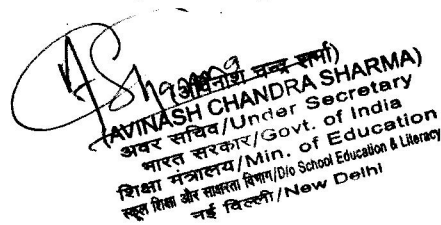 A Sharma
(अविनाश चन्द्र शर्मा)
(AVINASH CHANDRA SHARMA)
अवर सचिव/Under Secretary
भारत सरकार/Govt. of India
शिक्षा मंत्रालय/Min. of Education
स्कूल शिक्षा और साक्षरता विभाग/D/o School Education & Literacy
नई दिल्ली/New Delhi